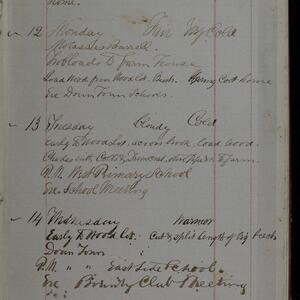 home.
12 Monday Fair Very Cold
Molasses Barrell.
two loads to farm house
Load Wood from Wood Lot. Bush. House
Eve Down Town Schools.
13 Tuesday Cloudy Cold
Early to Wood Lot, across Brook, Load Wood.
to farm.
P.M. West Primary School
Eve School Meeting
14 Wednesday Warmer
Early to Wood Lot. Cut & split length of Big Beech
Down Town
P.M. " " East Side School.
Eve Bounty Club Meeting